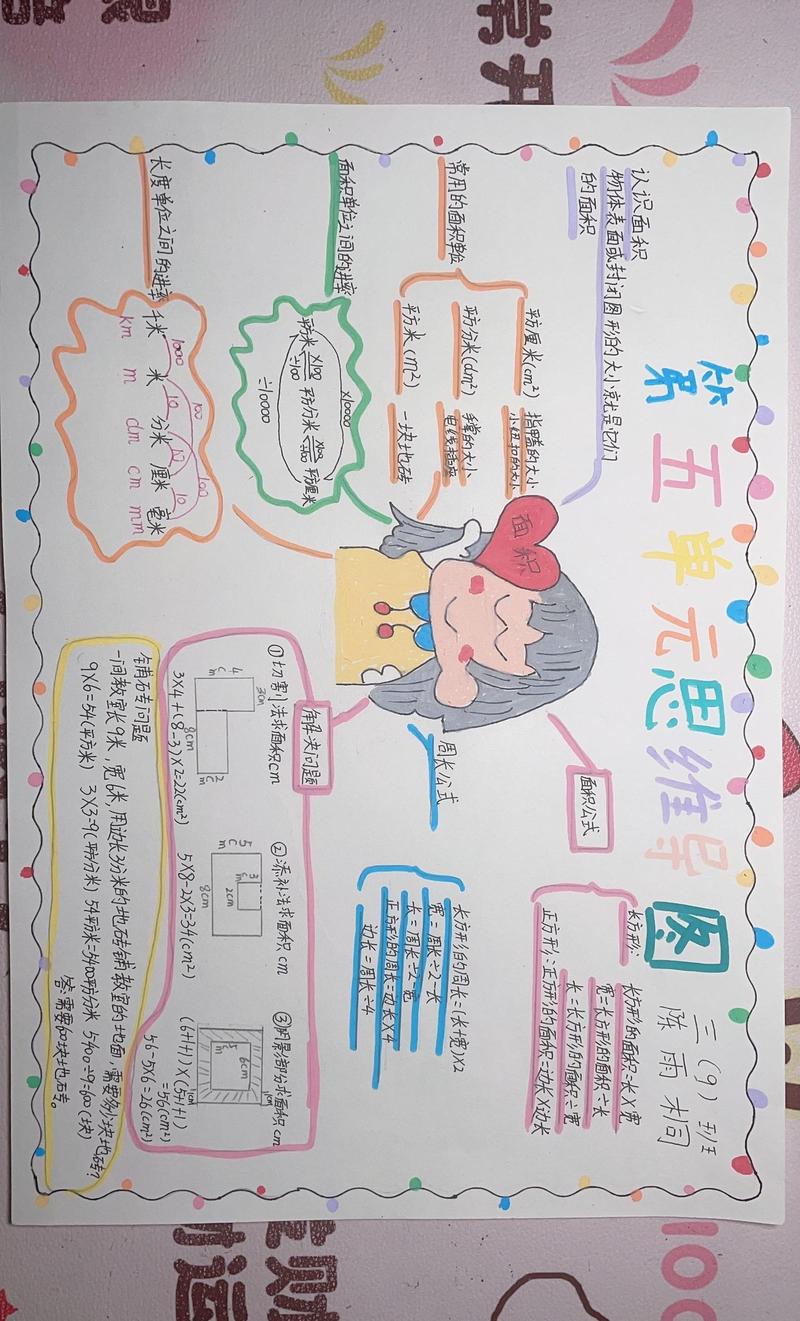 第五单元思维导图
三(9)班
陈雨桐
面积
认识面积
物体表面或封闭图形的大小就是它们
的面积
常用的面积单位
平方厘米(cm²)
指甲盖的大小
小纽扣的大小
平方分米(dm²)
手掌的大小
电线插座
平方米(m²)
一块地砖
面积单位之间的进率
×10000
平方米 ×100 平方分米 ×100 平方厘米
÷100 ÷100
÷10000
长度单位之间的进率
1000 10 10 10
100 100
千米 米 分米 厘米 毫米
km m dm cm mm
面积公式
长方形:
长方形的面积=长×宽
宽=长方形的面积÷长
长=长方形的面积÷宽
正方形:正方形的面积=边长×边长
周长公式
长方形的周长=(长+宽)×2
宽=周长÷2-长
长=周长÷2-宽
正方形的周长=边长×4
边长=周长÷4
解决问题
①切割法求面积cm
3cm
4cm
8cm
2cm
3×4+(8-3)×2=22(cm²)
②添补法求面积cm
5cm
3
2cm
8cm
5×8-2×3=34(cm²)
③阴影部分求面积cm
6cm
5
1cm
1cm
(6+1+1)×(5+1+1)
=56(cm²)
56-5×6=26(cm²)
铺砖问题
一间教室长9米,宽6米,用边长3分米的地砖铺教室的地面,需要多少块地砖?
9×6=54(平方米) 3×3=9(平方分米) 54平方米=5400平方分米 5400÷9=600(块)
答:需要600块地砖。